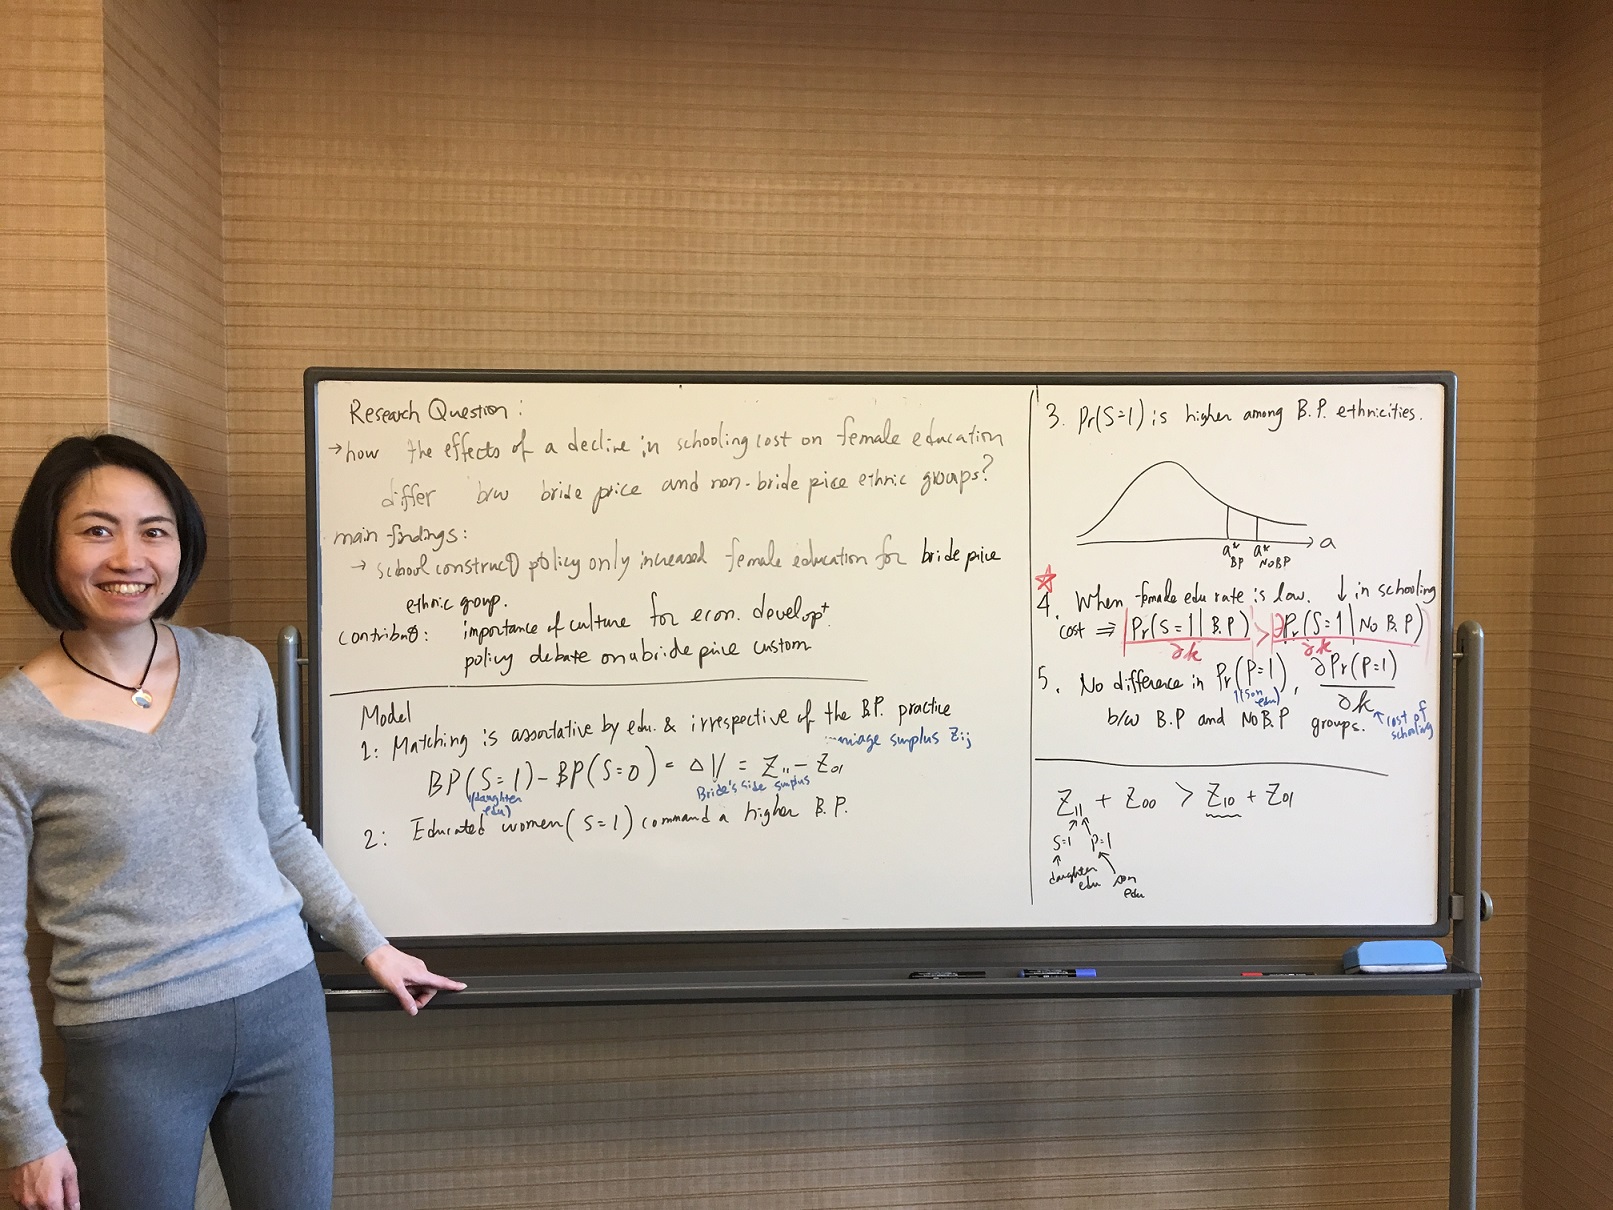 Research Question :
→ how the effects of a decline in schooling cost on female education
differ b/w bride price and non-bride pice ethnic groups?
main findings :
→ school construct policy only increased female education for bride price
ethnic group.
contribut : importance of culture for econ. develop't
policy debate on a bride price custom
Model
1: Matching is assortative by edu. & irrespective of the B.P. practice
marriage surplus Zij
BP(S=1) - BP(S=0) = ΔV = Z11 - Z01
(daughter edu) Bride's side surplus
2: Educated women (S=1) command a higher B.P.
3. Pr(S=1) is higher among B.P. ethnicities.
a
a* BP a* NOBP
4. When female edu rate is low. ↓ in schooling
cost ⇒ |Pr(S=1|B.P)/∂k| > |∂Pr(S=1|No B.P)/∂k|
5. No difference in Pr(P=1), ∂Pr(P=1)/∂k
(son edu)
b/w B.P and No B.P groups.
↖ cost of schooling
Z11 + Z00 > Z10 + Z01
S=1 P=1
daughter edu son edu